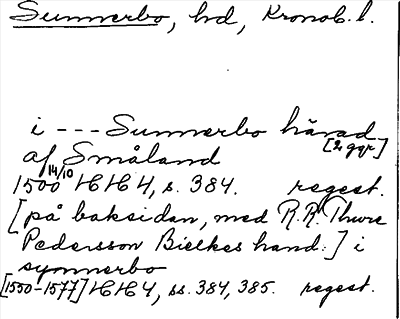 Sunnerbo, hd, Kronob. l.
i --- Sunnerbo härad
[2 ggr]
af Småland
1500 14/10 HH 4, s. 384. regest.
[på baksidan, med R.R. Thure
Pedersson Bielkes hand:] i
synnerbo
[1550-1577] HH 4, ss. 384, 385. regest.